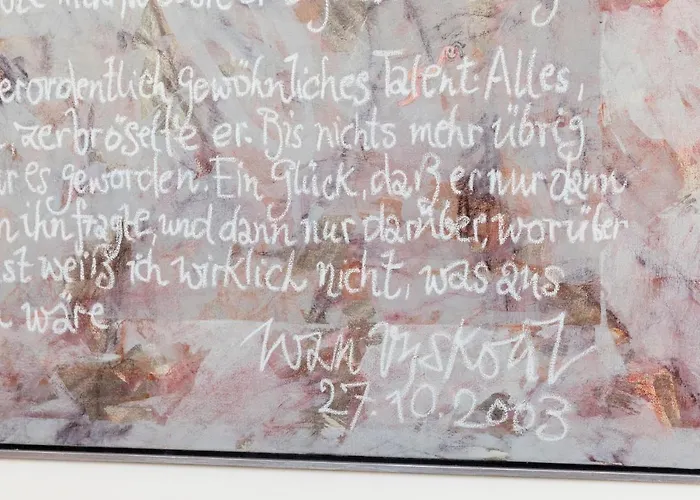 erordentlich gewöhnliches Talent. Alles,
, zerbröselte er. Bis nichts mehr übrig
ar es geworden. Ein Glück, daß er nur dann
n ihn fragte, und dann nur darüber, worüber
st weiß ich wirklich nicht, was aus
n wäre
27.10.2003